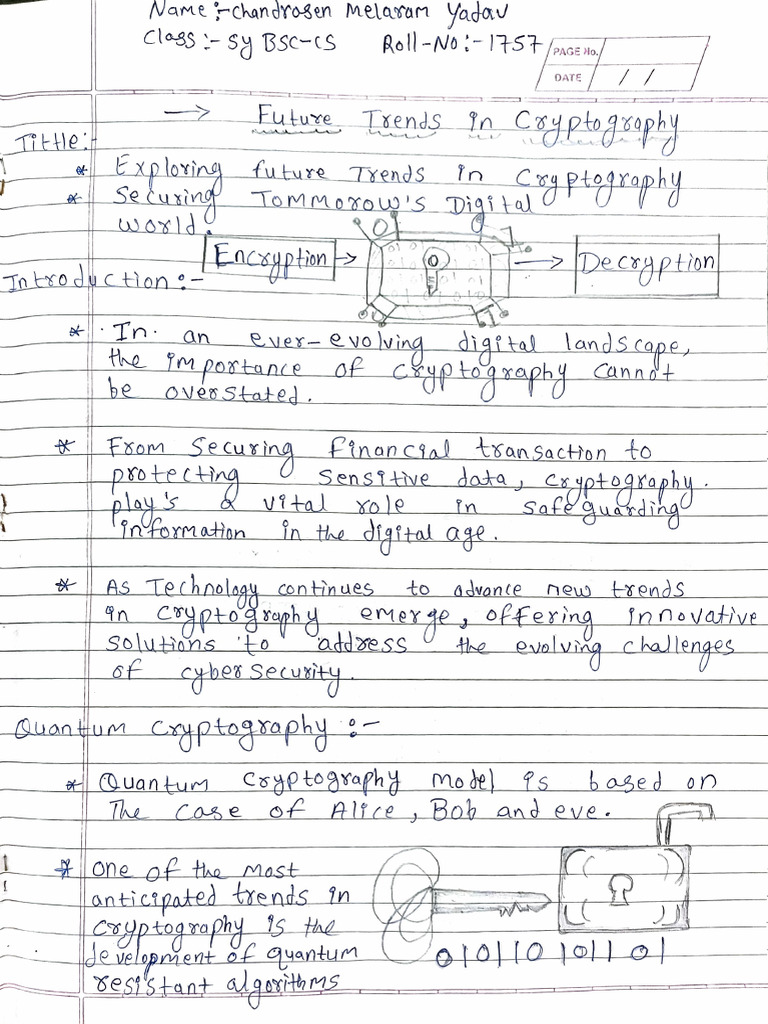 Name :- Chandrasen Melaram Yadav
Class :- Sy BSC-CS Roll-No :- 1757
PAGE No.
DATE / /
→ Future Trends in Cryptography
Tittle:-
* Exploring future Trends in Cryptography
* Securing Tommorow's Digital
world.
Encryption → → Decryption
Introduction :-
* In an ever-evolving digital landscape,
the importance of cryptography cannot
be overstated.
* From Securing financial transaction to
protecting sensitive data, cryptography.
play's a vital role in safeguarding
information in the digital age.
* As Technology continues to advance new trends
in cryptography emerge, offering innovative
solutions to address the evolving challenges
of cybersecurity.
Quantum cryptography :-
* Quantum cryptography model is based on
The case of Alice, Bob and eve.
* One of the most
anticipated trends in
cryptography is the
development of quantum
resistant algorithms
010110101101